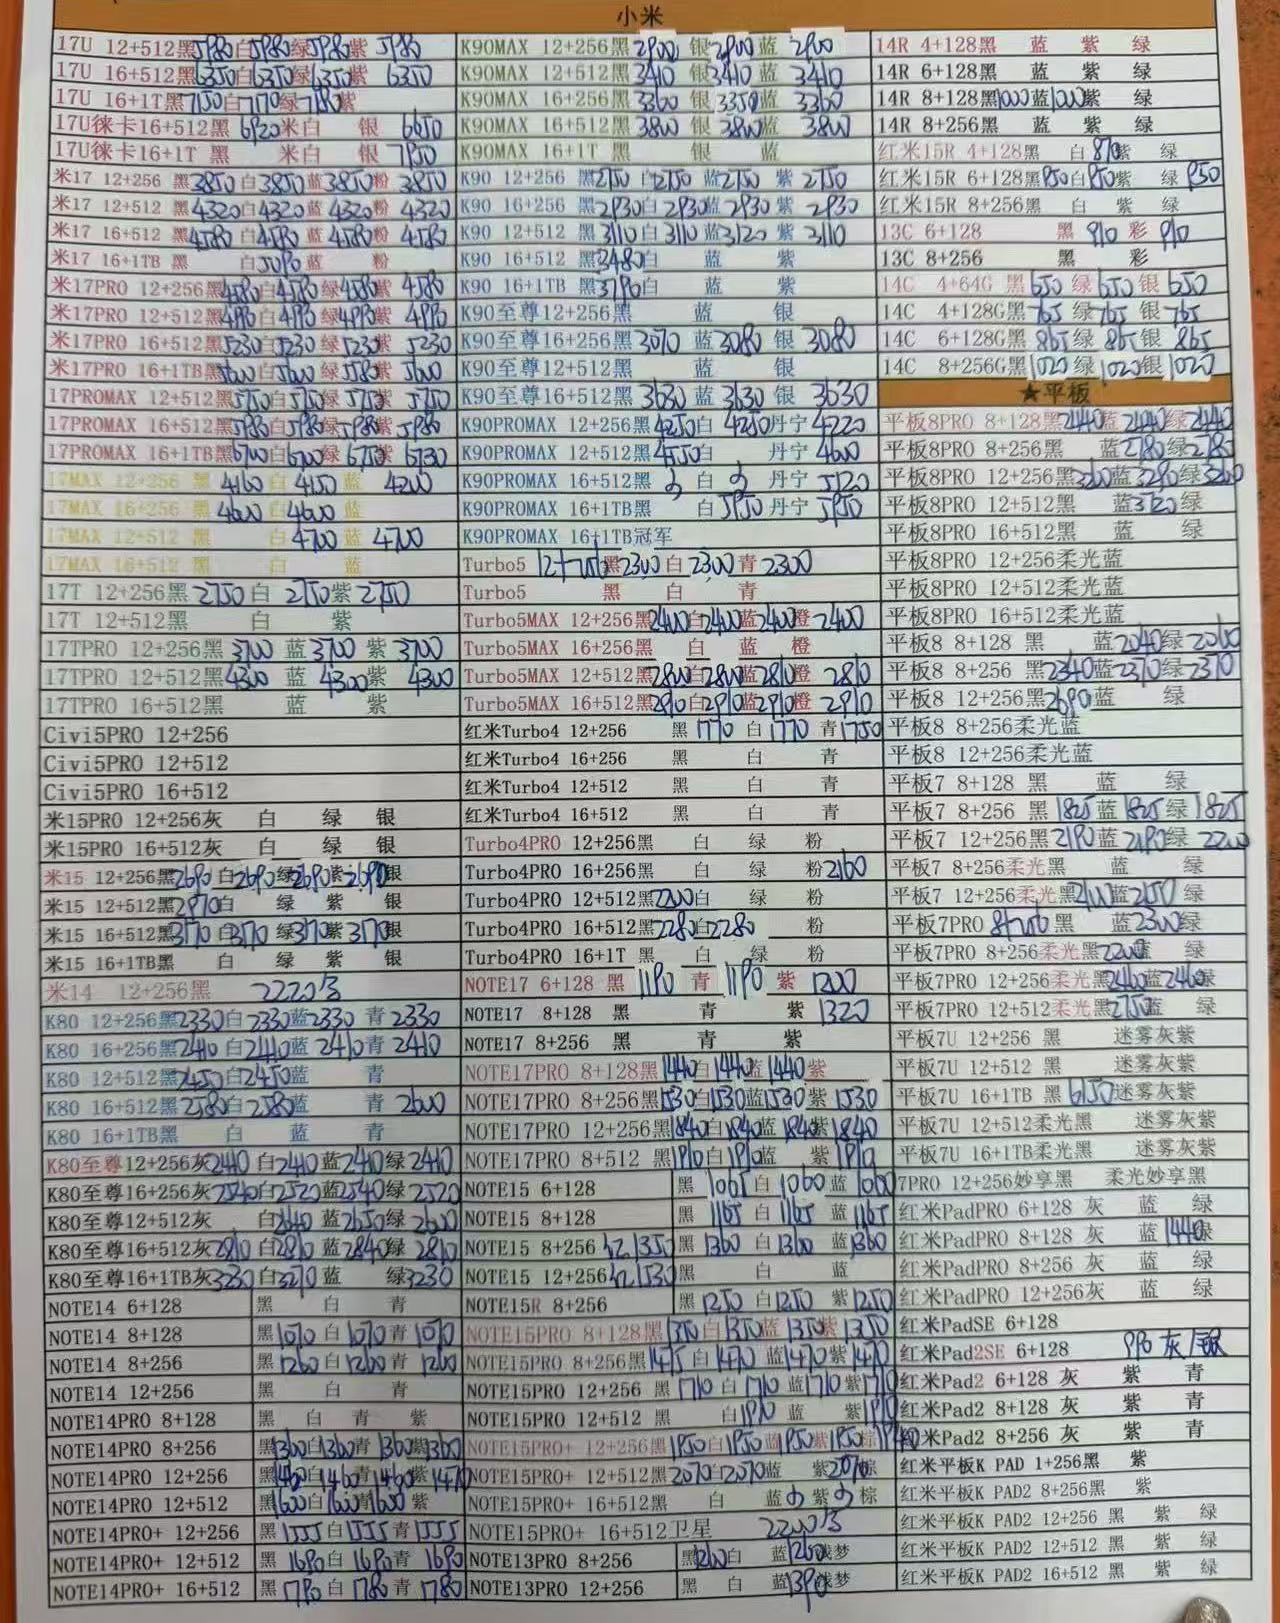 小米
17U 12+512黑5980白5980绿5980紫 5980
17U 16+512黑6350白6350绿6350紫 6350
17U 16+1T黑7150白7170绿7150紫
17U徕卡16+512黑 6920米白 银 6650
17U徕卡16+1T 黑 米白 银 7950
米17 12+256 黑3850白3850蓝3850粉 3850
米17 12+512 黑4320白4320蓝4320粉 4320
米17 16+512 黑4580白4580蓝4580粉 4580
米17 16+1TB 黑 白5090蓝 粉
米17PRO 12+256黑4580白4580绿4580紫 4580
米17PRO 12+512黑4990白4990绿4990紫 4990
米17PRO 16+512黑5230白5230绿5230紫 5230
米17PRO 16+1TB黑5600白5600绿5580紫 5600
17PROMAX 12+512黑5750白5750绿5750紫 5750
17PROMAX 16+512黑5980白5980绿5980紫 5980
17PROMAX 16+1TB黑6700白6700绿6750紫6730
17MAX 12+256 黑 4160 白 4150 蓝 4200
17MAX 16+256 黑 4600 白 4600 蓝
17MAX 12+512 黑 白 4700 蓝 4700
17MAX 16+512 黑 白 蓝
17T 12+256黑 2750 白 2750紫 2750
17T 12+512黑 白 紫
17TPRO 12+256黑 3700 蓝 3700 紫 3700
17TPRO 12+512黑4300 蓝 4300紫 4300
17TPRO 16+512黑 蓝 紫
Civi5PRO 12+256
Civi5PRO 12+512
Civi5PRO 16+512
米15PRO 12+256灰 白 绿 银
米15PRO 16+512灰 白 绿 银
米15 12+256黑2690 白2690绿2690紫2690银
米15 12+512黑2970白 绿 紫 银
米15 16+512黑3170 白3170 绿3170紫3170银
米15 16+1TB黑 白 绿 紫 银
米14 12+256黑 2220
K80 12+256黑2330白2330蓝2330 青 2330
K80 16+256黑2410 白2410蓝 2410青 2410
K80 12+512黑2450白2450蓝 青
K80 16+512黑2580白2580蓝 青 2600
K80 16+1TB黑 白 蓝 青
K80至尊12+256灰2410 白2410蓝2410绿 2410
K80至尊16+256灰2540白2520蓝2540绿 2520
K80至尊12+512灰 白2640 蓝2650绿 2600
K80至尊16+512灰2810 白2810 蓝2840绿 2810
K80至尊16+1TB灰3230 白3270蓝 绿3230
NOTE14 6+128 黑 白 青
NOTE14 8+128 黑1070白1070青 1070
NOTE14 8+256 黑1260白1260青 1260
NOTE14 12+256 黑 白 青
NOTE14PRO 8+128 黑 白 青 紫
NOTE14PRO 8+256 黑1360白1360青 1360紫1360
NOTE14PRO 12+256 黑1460白1460青1460紫1470
NOTE14PRO 12+512 黑1600白1600青1600 紫
NOTE14PRO+ 12+256 黑1555白1555青1555
NOTE14PRO+ 12+512 黑 1690白 1690青 1690
NOTE14PRO+ 16+512 黑1790 白 1780 青 1780
K90MAX 12+256黑2900 银2900蓝 2900
K90MAX 12+512黑3410 银3410蓝 3410
K90MAX 16+256黑3360 银3350蓝 3360
K90MAX 16+512黑3800 银3800蓝 3800
K90MAX 16+1T 黑 银 蓝
K90 12+256 黑2750 白2750 蓝2750 紫 2750
K90 16+256 黑2930白 2930蓝 2930 紫 2930
K90 12+512 黑3110白3110蓝3120 紫 3110
K90 16+512 黑3480白 蓝 紫
K90 16+1TB 黑3790白 蓝 紫
K90至尊12+256黑 蓝 银
K90至尊16+256黑3070 蓝 3080 银 3080
K90至尊12+512黑 蓝 银
K90至尊16+512黑3630 蓝 3630 银 3630
K90PROMAX 12+256黑4250白 4250丹宁4220
K90PROMAX 12+512黑4550白 丹宁4600
K90PROMAX 16+512黑 白 丹宁 5120
K90PROMAX 16+1TB黑 白5950 丹宁 5950
K90PROMAX 16+1TB冠军
Turbo5 12+256黑2300 白 2300 青 2300
Turbo5 黑 白 青
Turbo5MAX 12+256黑2400白2400蓝2400橙 2400
Turbo5MAX 16+256黑 白 蓝 橙
Turbo5MAX 12+512黑2800白2800蓝2810橙 2810
Turbo5MAX 16+512黑2910白2910蓝2910橙 2910
红米Turbo4 12+256 黑 1770 白1770 青1750
红米Turbo4 16+256 黑 白 青
红米Turbo4 12+512 黑 白 青
红米Turbo4 16+512 黑 白 青
Turbo4PRO 12+256黑 白 绿 粉
Turbo4PRO 16+256黑 白 绿 粉2160
Turbo4PRO 12+512黑2200白 绿 粉
Turbo4PRO 16+512黑2280白2280 粉
Turbo4PRO 16+1T 黑 白 绿 粉
NOTE17 6+128 黑 1190 青 1190 紫 1200
NOTE17 8+128 黑 青 紫 1320
NOTE17 8+256 黑 青 紫
NOTE17PRO 8+128黑1440白1440蓝1440紫
NOTE17PRO 8+256黑1530白1530蓝1530紫 1530
NOTE17PRO 12+256黑1840白1840蓝 1840紫1840
NOTE17PRO 8+512 黑1910白1910蓝 紫1910
NOTE15 6+128 黑 1065白 1060 蓝 1060
NOTE15 8+128 黑 1165 白 1165 蓝1165
NOTE15 8+256 红1350 黑1360 白1360 蓝1360
NOTE15 12+256红1530黑 白 蓝
NOTE15R 8+256 黑1250 白1250 紫1250
NOTE15PRO 8+128黑1350白1350蓝 1350紫1350
NOTE15PRO 8+256黑1475 白1470 蓝1470紫 1470
NOTE15PRO 12+256 黑1710 白1710 蓝1710紫1710
NOTE15PRO 12+512 黑 白1910 蓝 紫1910
NOTE15PRO+ 12+256黑1950白1950蓝1950紫1950棕 1940
NOTE15PRO+ 12+512黑2070白2070蓝 紫2070棕
NOTE15PRO+ 16+512黑 白 蓝 紫 棕
NOTE15PRO+ 16+512卫星 2200
NOTE13PRO 8+256 黑1260白 蓝1260浅梦
NOTE13PRO 12+256 黑 白 蓝1390浅梦
14R 4+128黑 蓝 紫 绿
14R 6+128黑 蓝 紫 绿
14R 8+128黑1000蓝1000紫 绿
14R 8+256黑 蓝 紫 绿
红米15R 4+128黑 白870紫 绿
红米15R 6+128黑950白950紫 绿 950
红米15R 8+256黑 白 紫 绿
13C 6+128 黑 910 彩 910
13C 8+256 黑 彩
14C 4+64G 黑650 绿 650 银 650
14C 4+128G黑765 绿 765 银 765
14C 6+128G黑865 绿 865 银 865
14C 8+256G黑1020 绿 1020银 1020
★平板
平板8PRO 8+128黑2440蓝2440绿2440
平板8PRO 8+256黑 蓝2780绿2785
平板8PRO 12+256黑3200蓝3290绿3200
平板8PRO 12+512黑 蓝3720 绿
平板8PRO 16+512黑 蓝 绿
平板8PRO 12+256柔光蓝
平板8PRO 12+512柔光蓝
平板8PRO 16+512柔光蓝
平板8 8+128 黑 蓝2040绿 2060
平板8 8+256 黑2340蓝2370绿 2370
平板8 12+256黑2690蓝 绿
平板8 8+256柔光蓝
平板8 12+256柔光蓝
平板7 8+128 黑 蓝 绿
平板7 8+256 黑 1825蓝 1825绿 1825
平板7 12+256黑2190蓝2190绿 2200
平板7 8+256柔光黑 蓝 绿
平板7 12+256柔光黑2100蓝2150 绿
平板7PRO 8+256黑 蓝2300绿
平板7PRO 8+256柔光黑2200蓝 绿
平板7PRO 12+256柔光黑2460蓝2460绿
平板7PRO 12+512柔光黑2750蓝 绿
平板7U 12+256 黑 迷雾灰紫
平板7U 12+512 黑 迷雾灰紫
平板7U 16+1TB 黑6150迷雾灰紫
平板7U 12+512柔光黑 迷雾灰紫
平板7U 16+1TB柔光黑 迷雾灰紫
7PRO 12+256妙享黑 柔光妙享黑
红米PadPRO 6+128 灰 蓝 绿
红米PadPRO 8+128 灰 蓝1440绿
红米PadPRO 8+256 灰 蓝 绿
红米PadPRO 12+256灰 蓝 绿
红米PadSE 6+128
红米Pad2SE 6+128 990 灰 银
红米Pad2 6+128 灰 紫 青
红米Pad2 8+128 灰 紫 青
红米Pad2 8+256 灰 紫 青
红米平板K PAD 1+256黑 紫
红米平板K PAD2 8+256黑 紫
红米平板K PAD2 12+256 黑 紫 绿
红米平板K PAD2 12+512 黑 紫 绿
红米平板K PAD2 16+512 黑 紫 绿